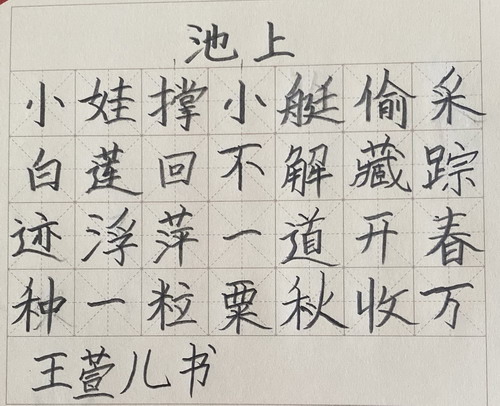 池上
小娃撑小艇偷采
白莲回不解藏踪
迹浮萍一道开春
种一粒粟秋收万
王萱儿书